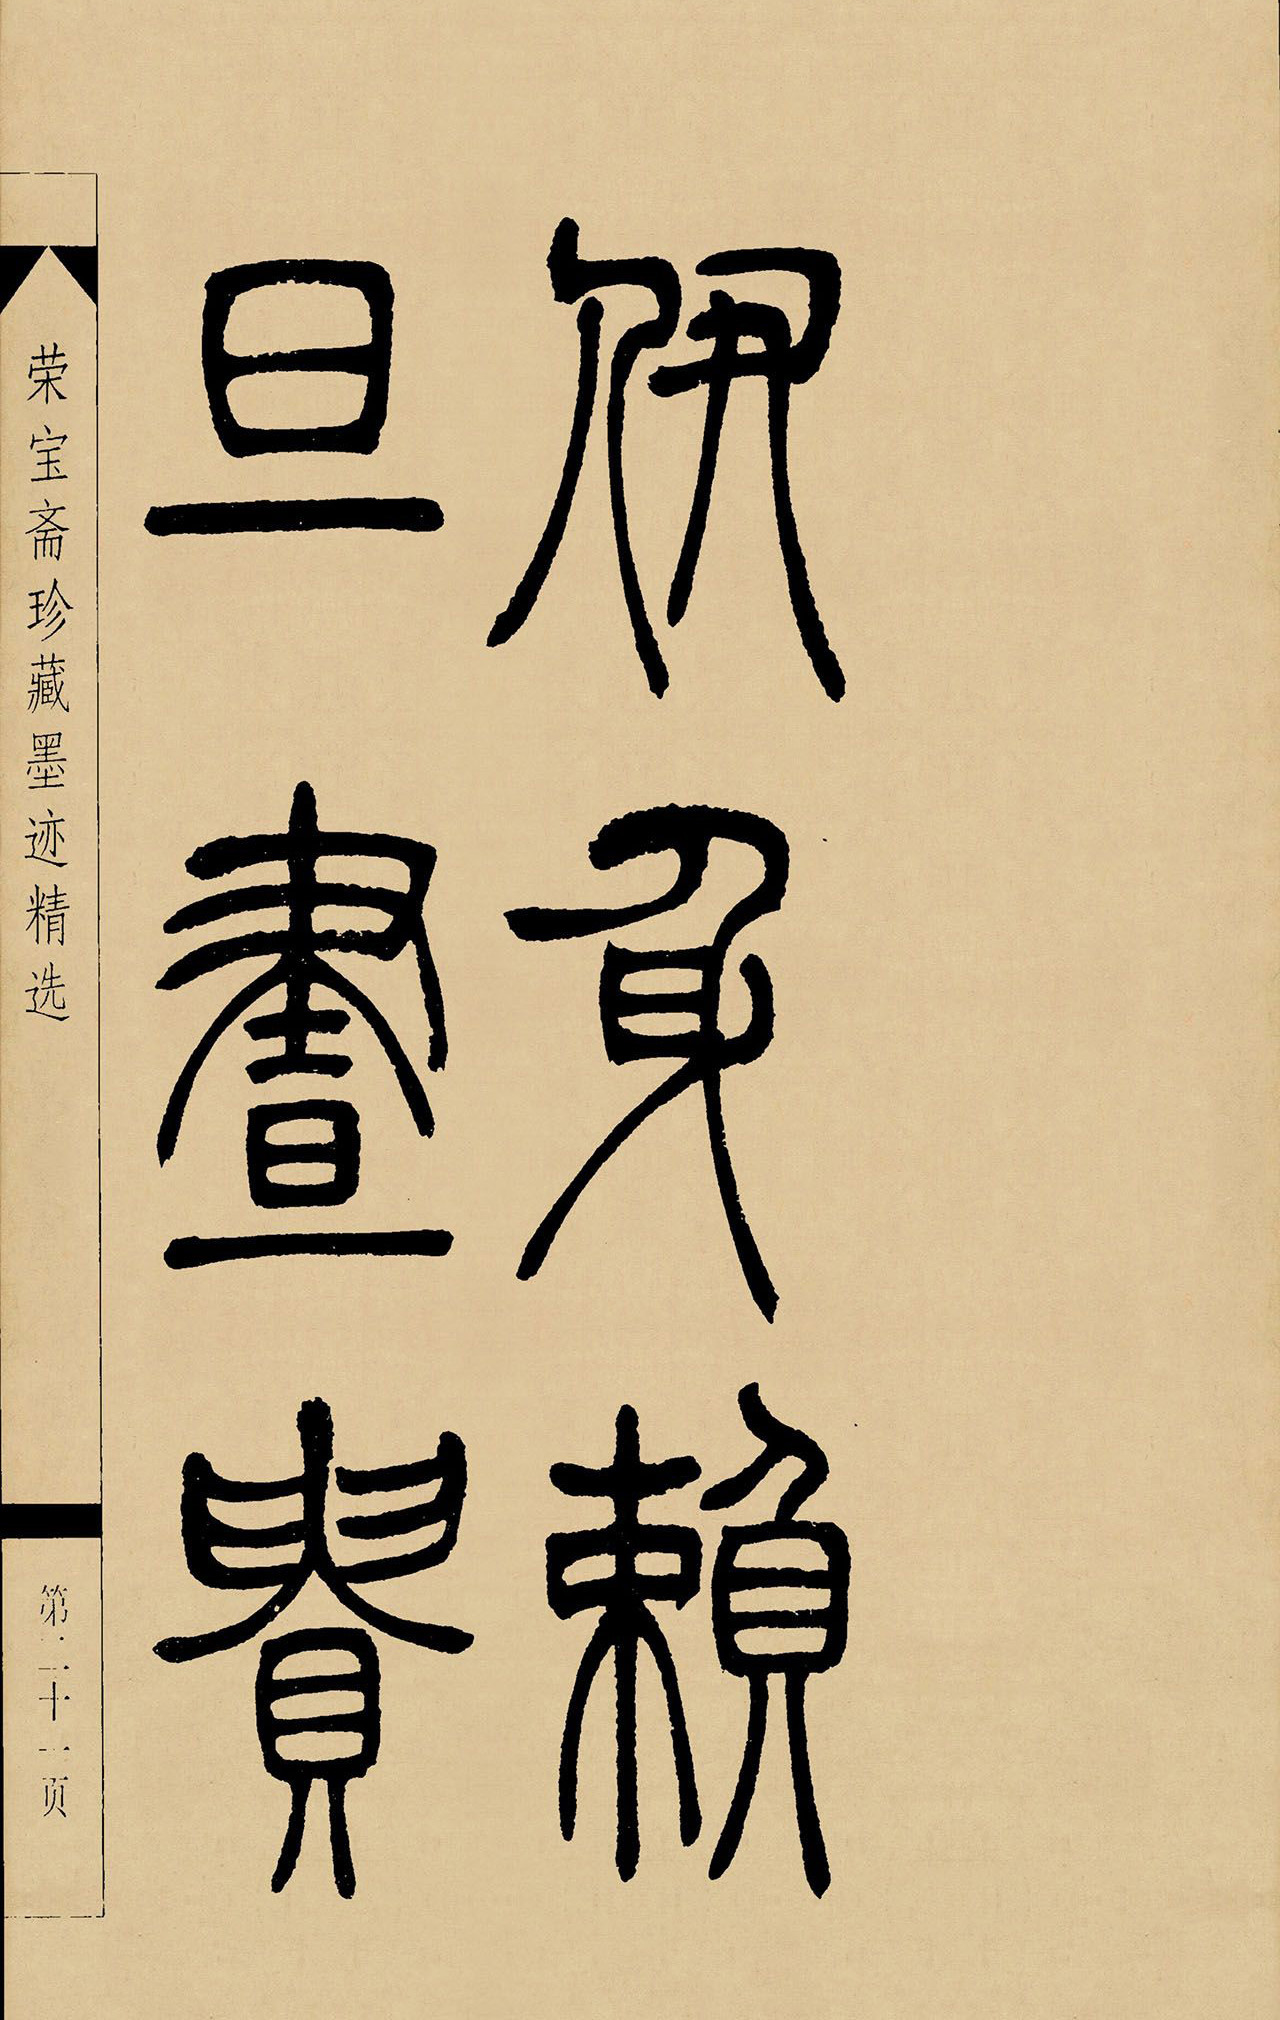 伊賴
旦晝貴
荣宝斋珍藏墨迹精选
第二十一页